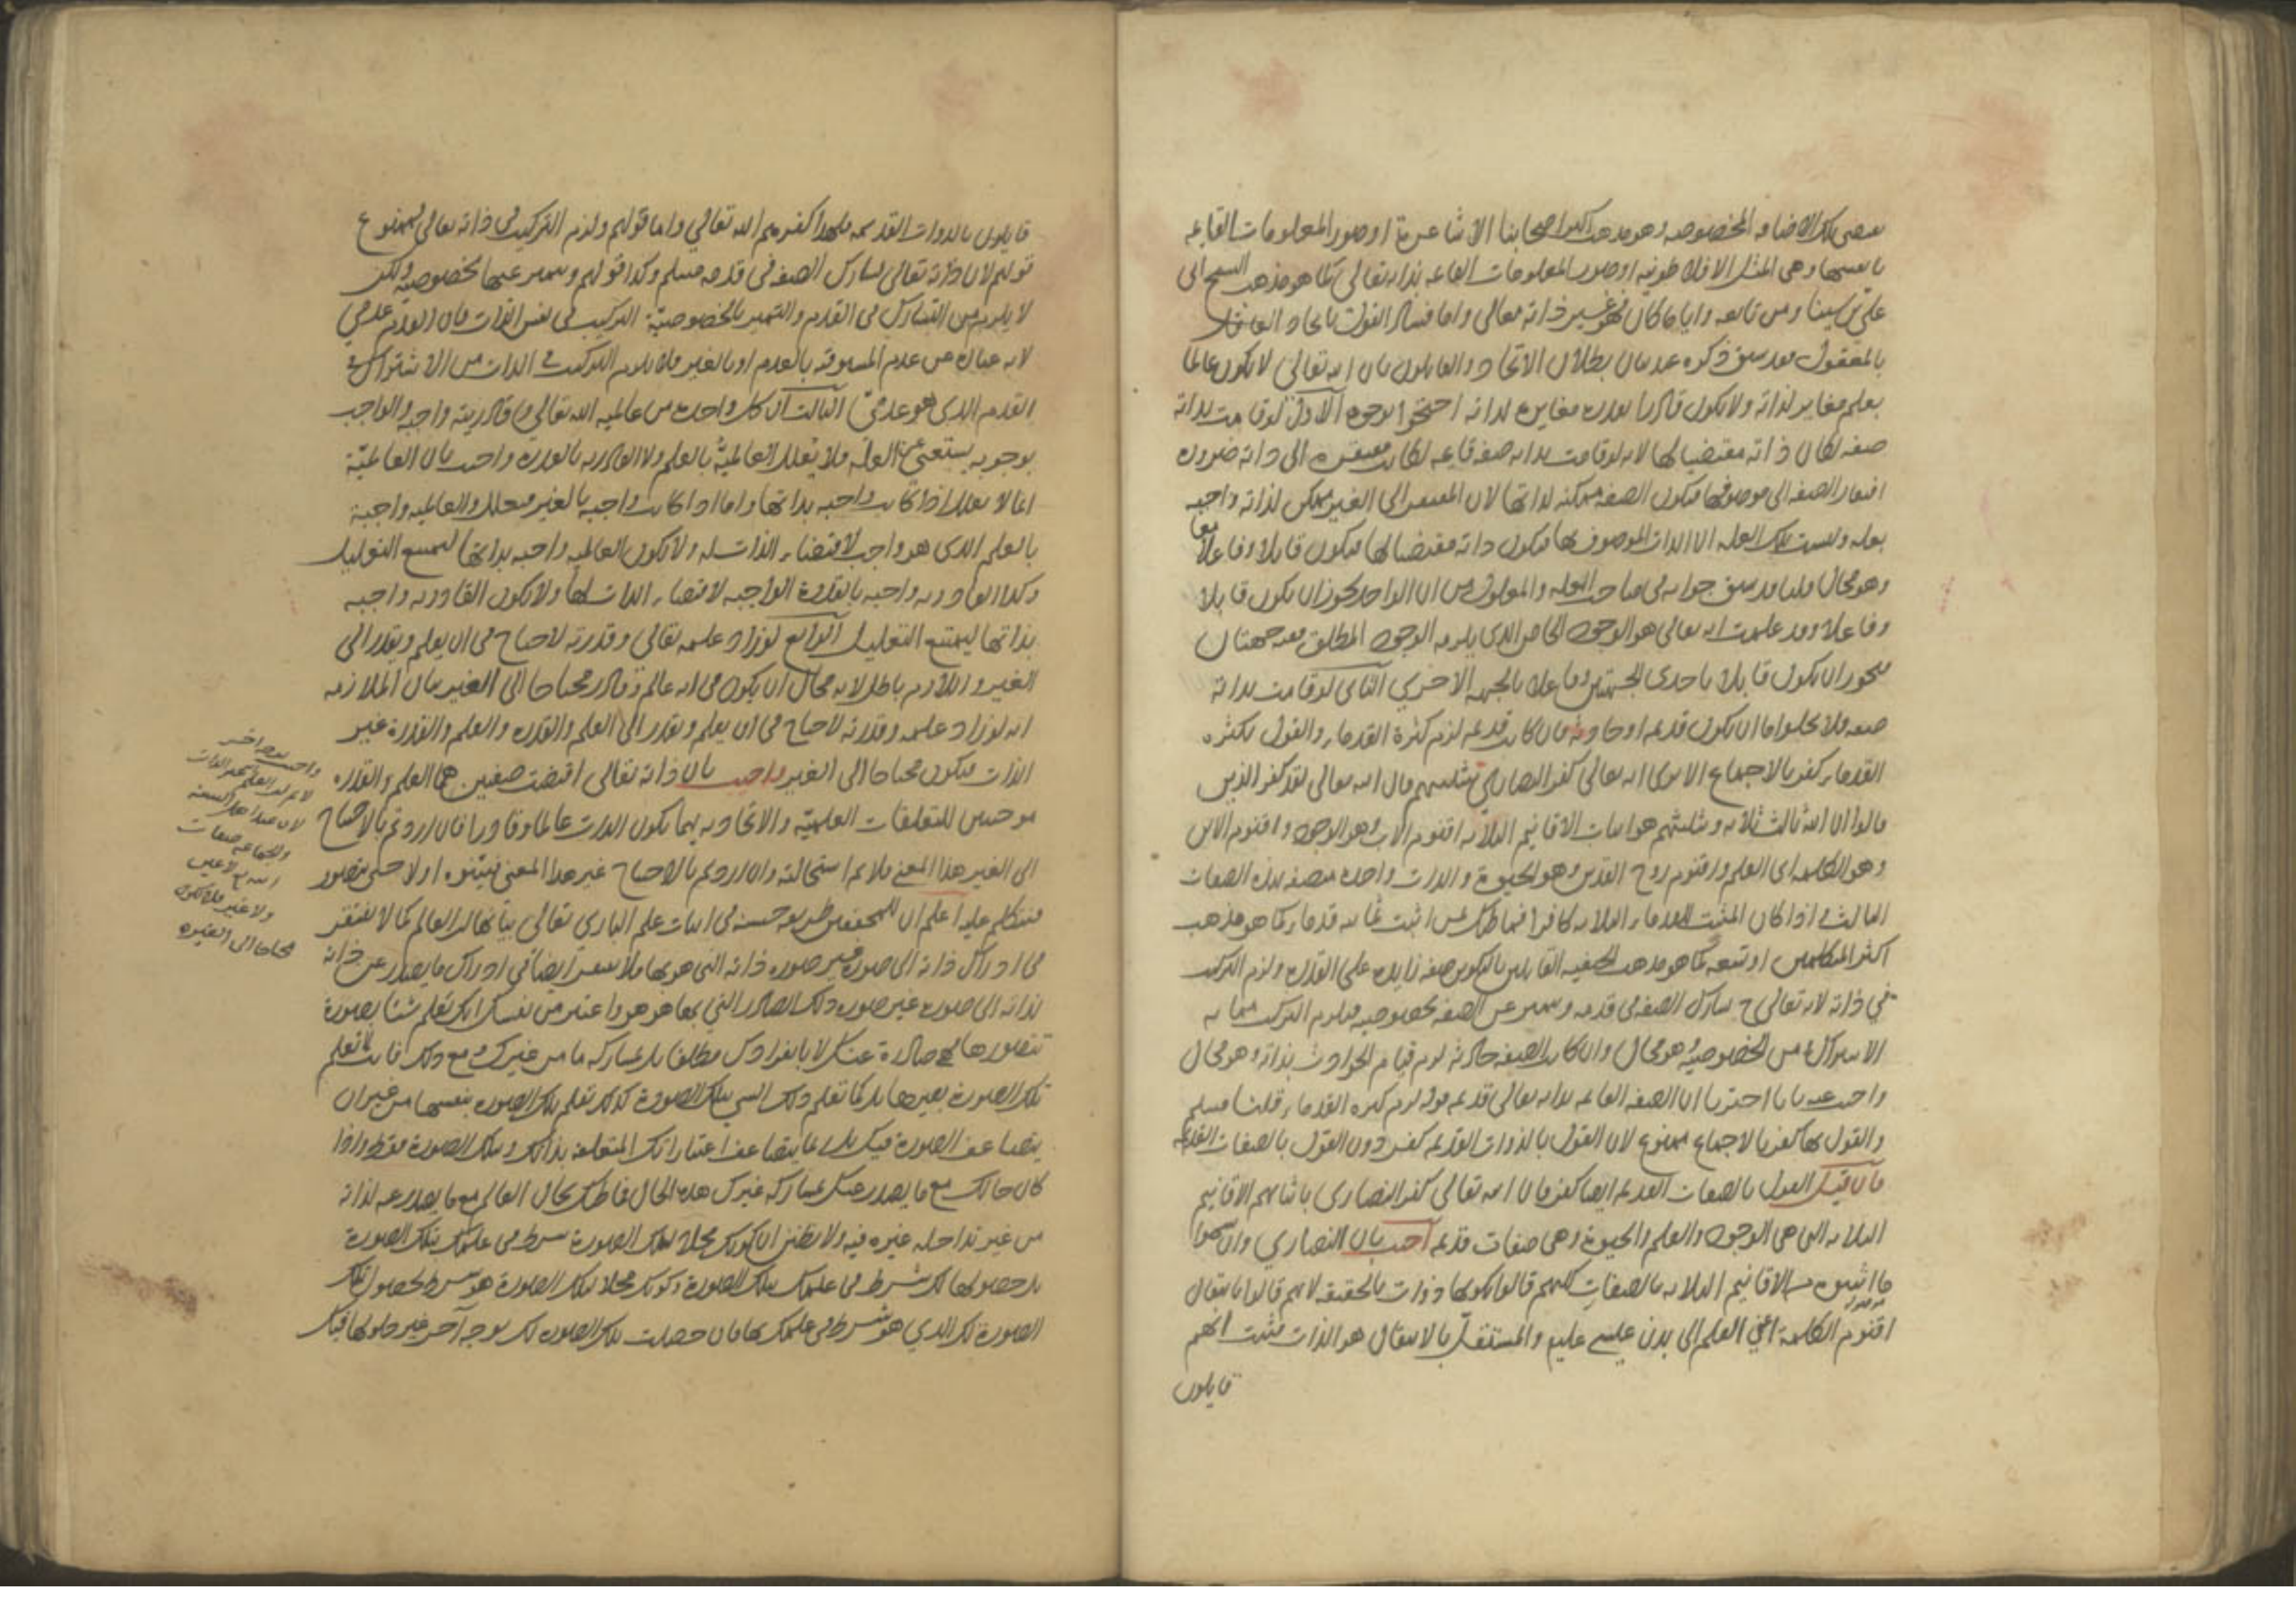 بلك الاضافه المخصوصه وهو مذهب اكثر اصحابنا الاشاعرة او صور المعلومات القايمه
بانفسها وهى المثل الافلاطونيه او صور المعلومات القايمه بذاته تعالى كما هو مذهب الشيخ ابى
على بن سينا ومن تابعه واياما كان فهو غير ذاته تعالى واما فساد القول باتحاد العاقل
بالمعقول فقد سبق ذكره عند بيان بطلان الاتحاد والقايلون بان الله تعالى لا يكون عالما
بعلم مغاير لذاته ولا يكون قادرا بقدرة مغايرة لذاته احتجوا بوجوه الاول لو قامت بذاته
صفه لكان ذاته مقتضيا لها لانه لو قامت بذاته صفه قايمه لكانت مفتقره الى ذاته ضرورة
افتقار الصفه الى موصوفها فيكون الصفه ممكنه لذاتها لان المفتقر الى الغير ممكن لذاته واجبه
بعله وليست تلك العله الا الذات الموصوف بها فيكون ذاته مقتضيا لها فيكون قابلا وفاعلا معا
وهو محال قلنا قد سبق جوابه فى مباحث العله والمعلول من ان الواحد يجوز ان يكون قابلا
وفاعلا وقد علمت انه تعالى هو الوجود الخاص الذى يلزمه الوجود المطلق ففيه جهتان
فيجوز ان يكون قابلا باحدى الجهتين وفاعلا بالجهه الاخرى الثانى لو قامت بذاته
صفه فلا يخلو اما ان يكون قديمه او حادثه فان كانت قديمه لزم كثرة القدماء والقول بكثره
القدماء كفر بالاجماع الا يرى انه تعالى كفر النصارى بتثليثهم قال الله تعالى لقد كفر الذين
قالوا ان الله ثالث ثلاثه وتثليثهم هو اثبات الاقانيم الثلاثه اقنوم الاب وهو الوجود واقنوم الابن
وهو الكلمه اى العلم واقنوم روح القدس وهو الحيوة والذات واحده متصفه بهذه الصفات
الثالث فاذا كان المثبت للقدماء الثلاثه كافرا فما ظنك بمن اثبت ثمانيه قدماء كما هو مذهب
اكثر المتكلمين او تسعه كما هو مذهب الحنفيه القايلين بالتكوين صفه زايده على القدرة ولزم التركيب
فى ذاته لانه تعالى ح يشارك الصفه فى قدمه ويتميز عن الصفه بخصوصيه فيلزم التركيب مما به
الاشتراك ومن الخصوصيه وهو محال وان كانت الصفه حادثه لزم قيام الحوادث بذاته وهو محال
واجيب عنه بانا اخترنا ان الصفه القايمه بذاته تعالى قديمه قوله لزم كثره القدماء قلنا مسلم
والقول بها كفر بالاجماع ممنوع لان القول بالذوات القديمه كفر دون القول بالصفات القديمه
فان قيل القول بالصفات القديمه ايضا كفر فان الله تعالى كفر النصارى باثباتهم الاقانيم
الثلاثه التى هى الوجود والعلم والحيوة وهى صفات قديمه اجيب بان النصارى وان سموا
ما اثبتوه من الاقانيم الثلاثه بالصفات لكنهم قالوا بكونها ذوات بالحقيقه لانهم قالوا بانتقال
اقنوم الكلمة اعنى العلم الى بدن عيسى عليه والمستقل بالانتقال هو الذات فثبت انهم
قايلون
قايلون بالذوات القديمه فلهذا كفرهم الله تعالى واما قولهم ولزم التركيب فى ذاته تعالى فممنوع
قولهم لان ذاته تعالى يشارك الصفه فى قدمه مسلم وكذا قولهم ويتميز عنها بخصوصيه ولكن
لا يلزم من التشارك فى القدم والتميز بالخصوصيّة التركيب فى نفس الذات فان القدم عدمى
لانه عباره عن عدم المسبوقيه بالعدم او بالغير فلا يلزم التركيب فى الذات من الاشتراك فى
القدم الذى هو عدمى الثالث ان كل واحدة من عالميه الله تعالى وقادريته واجبه والواجب
بوجوبه يستغنى عن العله فلا يعلل العالميّة بالعلم ولا القادريه بالقدره واجيب بان العالميّة
انما لا يعلل اذا كانت واجبه بذاتها واما اذا كانت واجبه بالغير فيعلل والعالميه واجبة
بالعلم الذى هو واجب لاقتضاء الذات له ولا يكون العالميه واجبه بذاتها ليمتنع التعليل
وكذا القادريه واجبه بالقدرة الواجبه لاقتضاء الذات لها ولا يكون القادريه واجبه
بذاتها ليمتنع التعليل الرابع لو زاد علمه تعالى وقدرته لاحتاج فى ان يعلم ويقدر الى
الغير واللازم باطل لانه محال ان يكون فى انه عالم وقادر محتاجا الى الغير بيان الملازمه
انه لو زاد علمه وقدرته لاحتاج فى ان يعلم ويقدر الى العلم والقدره والعلم والقدرة غير
الذات فيكون محتاجا الى الغير واجيب بان ذاته تعالى اقتضت صفتين هما العلم والقدره
موجبتين للتعلقات العلميّة والايجاديه بهما يكون الذات عالما وقادرا فان اردتم بالاحتياج
الى الغير هذا المعنى فلا نم استحالته وان اردتم بالاحتياج غير هذا المعنى فبيّنوه اولا حتى نتصور
فنتكلم عليه اعلم ان للمحققين طريقه حسنه فى اثبات علم البارى تعالى بيانها ان العالم كما لا يفتقر
فى ادراك ذاته الى صورة غير صورة ذاته التى هو بها فلا يفتقر ايضا فى ادراك ما يصدر عن ذاته
لذاته الى صوره غير صوره ذلك الصادر التى بها هو هو واعتبر من نفسك انك تعلم شيئا بصورة
تتصورها فهى صادرة عنك لا بانفرادك مطلقا بل بمشاركه ما من غيرك ومع ذلك فانت لا تعلم
تلك الصورة بغيرها بل كما تعلم ذلك الشى بتلك الصورة كذلك تعلم تلك الصوره بنفسها من غير ان
يتضاعف الصورة فيك بل انما يتضاعف اعتباراتك المتعلقه بذاتك وبتلك الصورة فقط واذا
كان حالك مع ما يصدر عنك بمشاركه غيرك هذه الحال فما ظنك بحال العالم مع ما يصدر عنه لذاته
من غير مداخله غيره فيه ولا تظنن ان كونك محلا لتلك الصورة شرط فى علمك بتلك الصورة
بل حصولها لك شرط فى علمك بتلك الصورة وكونك محلا لتلك الصورة هو شرط لحصول تلك
الصورة لك الذى هو شرط فى علمك بها فان حصلت تلك الصوره لك بوجه آخر غير حلولها فيك
واجيب بوجه اخر
لا نم ان العلم غير الذات
لان عند اهل السنه
والجماعه صفات
الله تع لا عين
ولا غير فلا يكون
محتاجا الى الغير